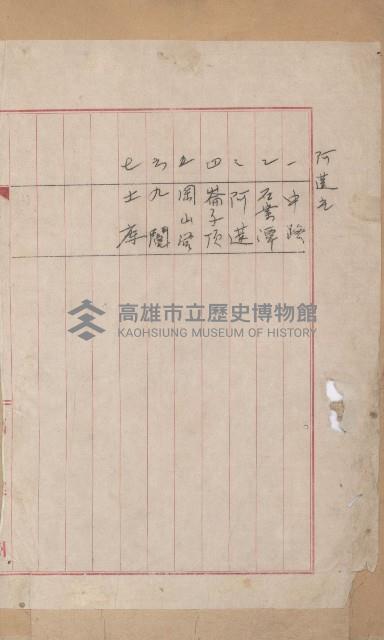 阿蓮庄
一 中路
二 石案潭
三 阿蓮
四 崙子頂
五 岡山營
六 九關
七 土庫
高雄市立歷史博物館
KAOHSIUNG MUSEUM OF HISTORY